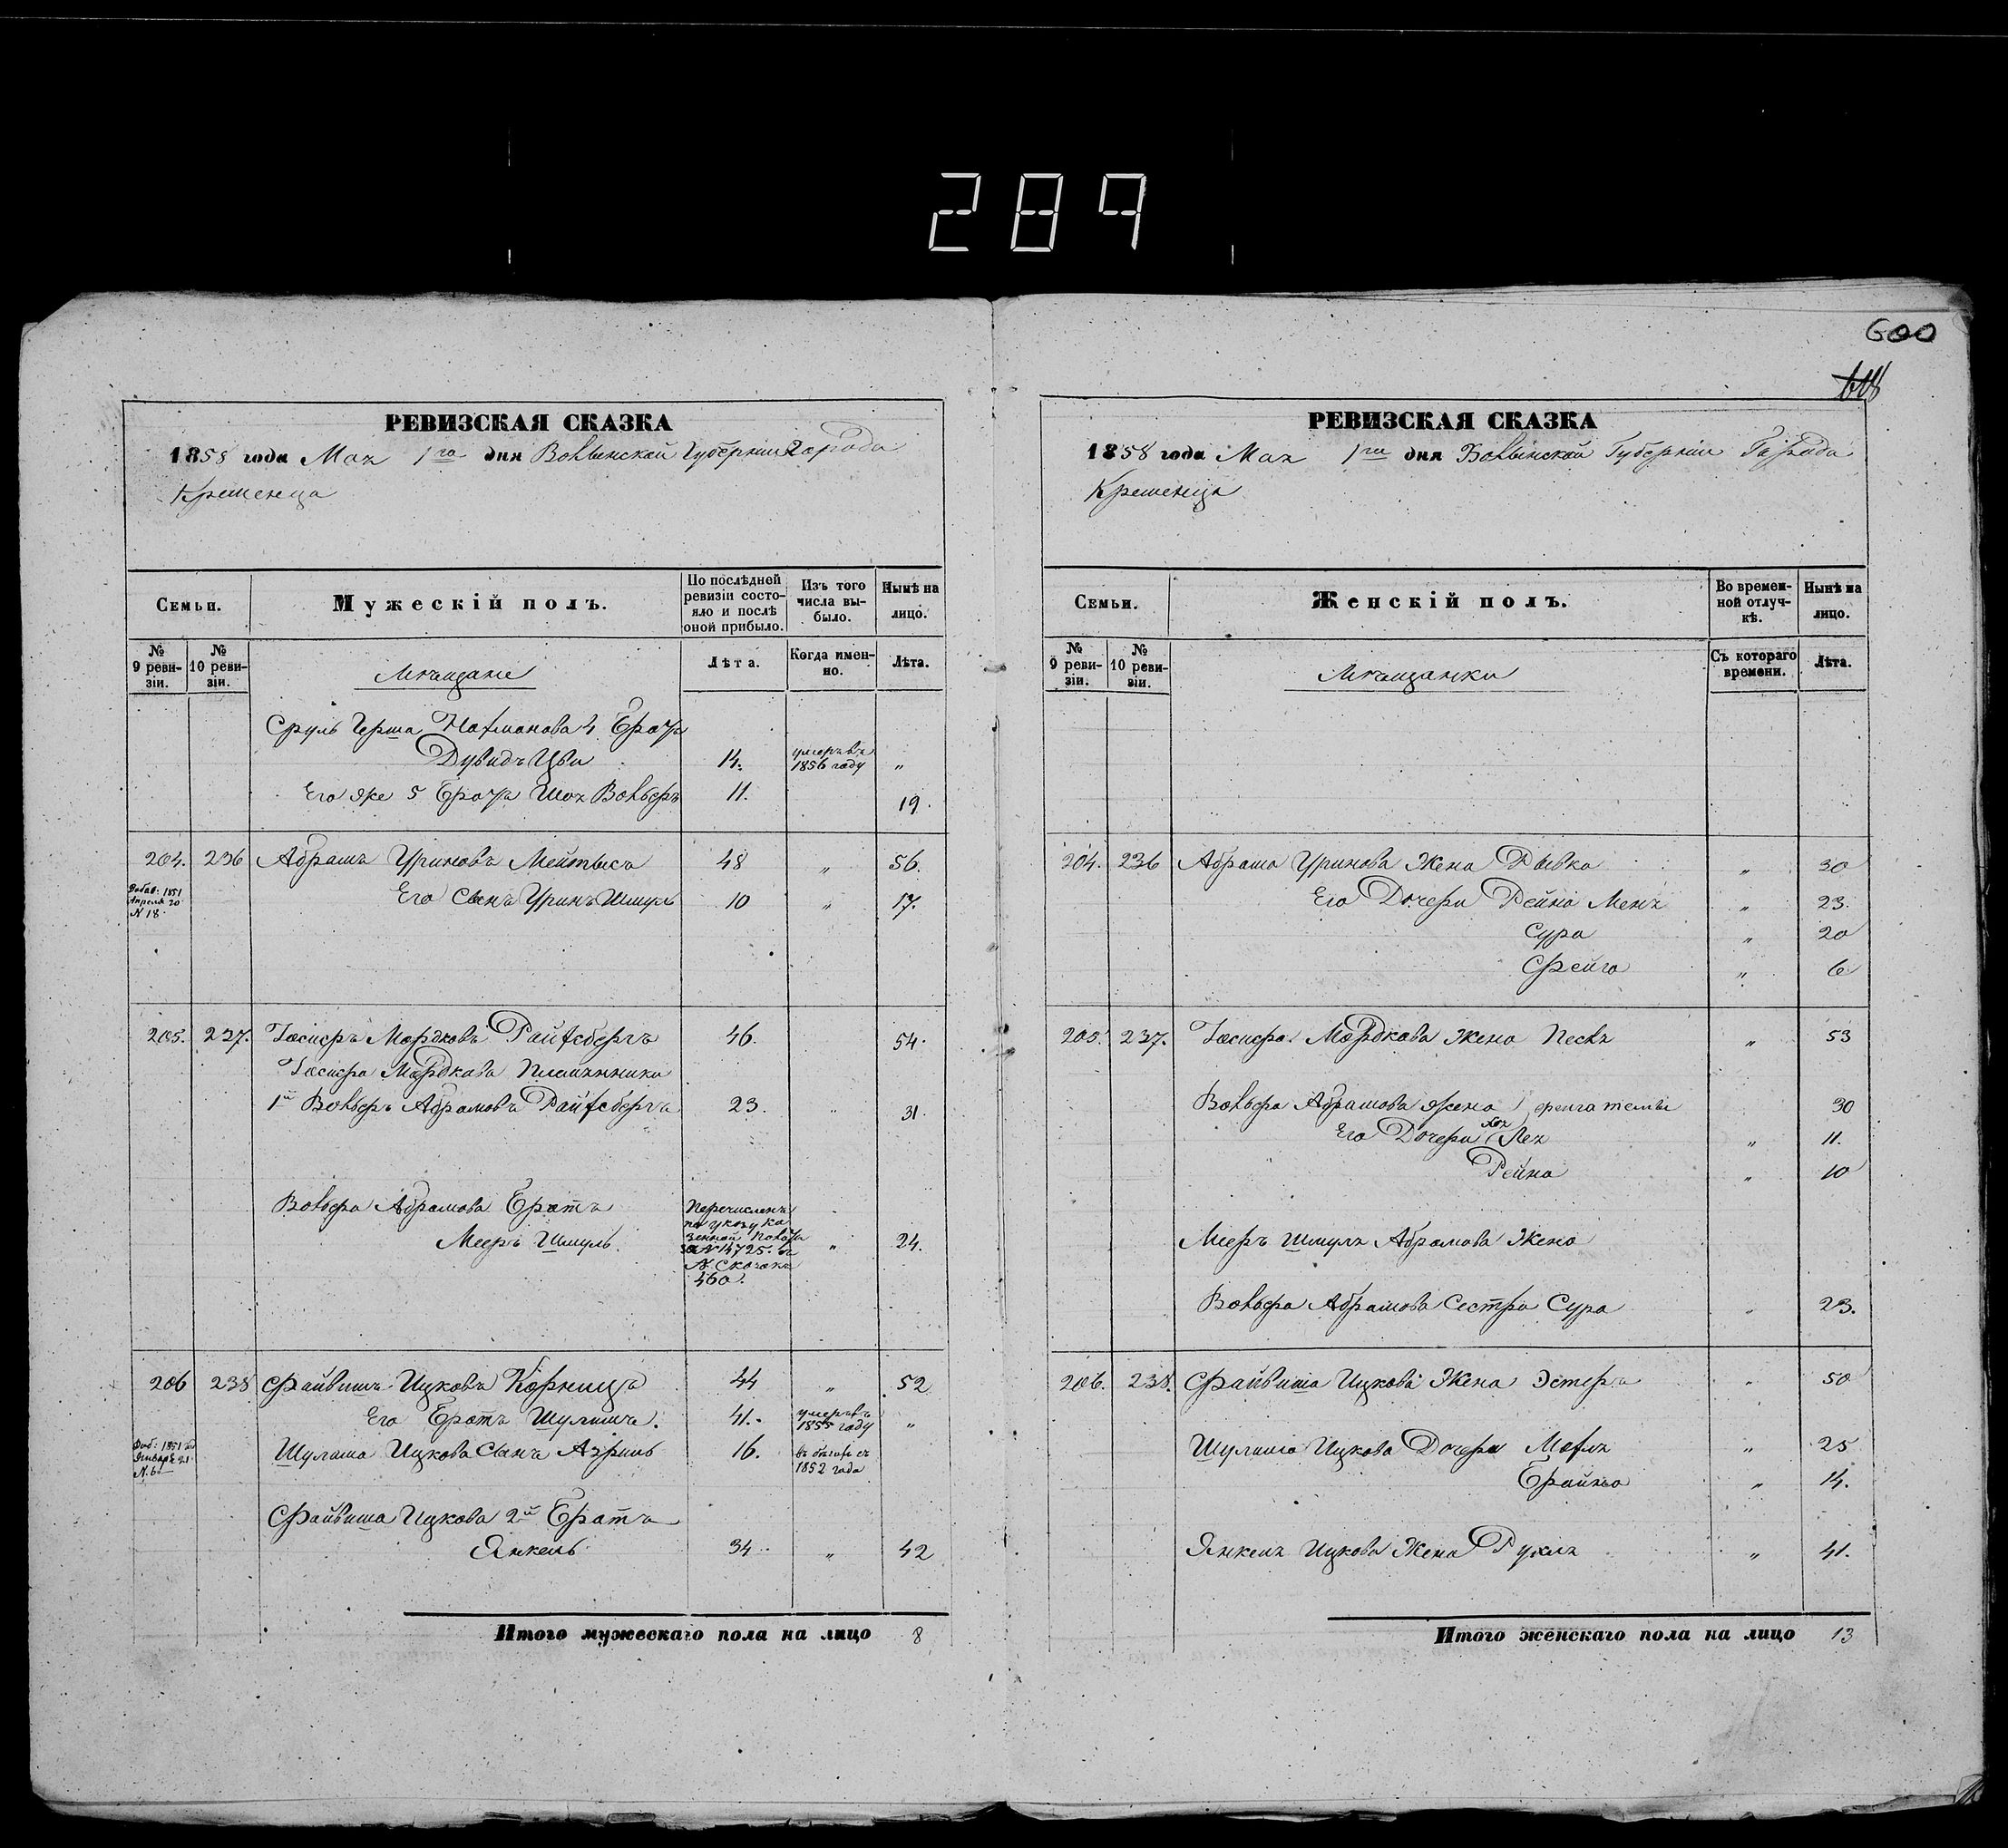 289
600
РЕВИЗСКАЯ СКАЗКА
1858 года Мая 1го дня Волынской Губернии города
Кременца
Семьи.
Мужескій полъ.
По послѣдней ревизіи состояло и послѣ оной прибыло.
Изъ того числа выбыло.
Нынѣ на лицо.
№ 9 ревизіи.
№ 10 ревизіи.
Мѣщане
Лѣта.
Когда именно.
Лѣта.
Сруль Герша Нахманова 4 Братъ
Дувидъ Цви 14. умеръ въ 1856 году "
Его же 5 Братъ Шоя Вольфъ 11. 19.
204. 236 Абрамъ Уриновъ Мейтысъ 48 " 56.
1851 Апреля 20 N 18.
Его Сынъ Уринъ Шмуль 10 " 17.
205. 237. Іосифъ Мордковъ Райхсбергъ 46. 54.
Іосифа Мордкова Племянники
1й Вольфъ Абрамовъ Райхсбергъ 23. " 31.
Вольфа Абрамова Братъ
Мееръ Шмуль. Перечисленъ по указу казенной Палаты за N 14725. " 24.
460.
206 238 Файвишъ Ицковъ Корница 44 " 52
Его Братъ Шулимъ. 41. умеръ въ 1855 году "
1851 Января 21 N. 6
Шулима Ицкова Сынъ Азриль 16. въ бегахъ съ 1852 года
Файвиша Ицкова 2й Братъ
Янкель 34. " 42
Итого мужескаго пола на лицо 8
РЕВИЗСКАЯ СКАЗКА
1858 года Мая 1го дня Волынской Губернии Города
Кременца
Семьи.
Женскій полъ.
Во временной отлучкѣ.
Нынѣ на лицо.
№ 9 ревизіи.
№ 10 ревизіи.
Мѣщанки
Съ котораго времени.
Лѣта.
204. 236 Абрама Уринова Жена Рывка " 30
Его Дочери Рейна Меня " 23.
Сура " 20
Фейга " 6
205. 237. Іосифа Мордкова Жена Песя " 53
Вольфа Абрамова жена фейга темы 30
Его Дочери Хая Лея " 11.
Рейна " 10
Мееръ Шмуля Абрамова Жена
Вольфа Абрамова Сестра Сура " 23.
206. 238. Файвиша Ицкова Жена Эстеръ " 50
Шулима Ицкова Дочери Махля " 25
Брайна " 14.
Янкеля Ицкова Жена Рухля " 41.
Итого женскаго пола на лицо 13